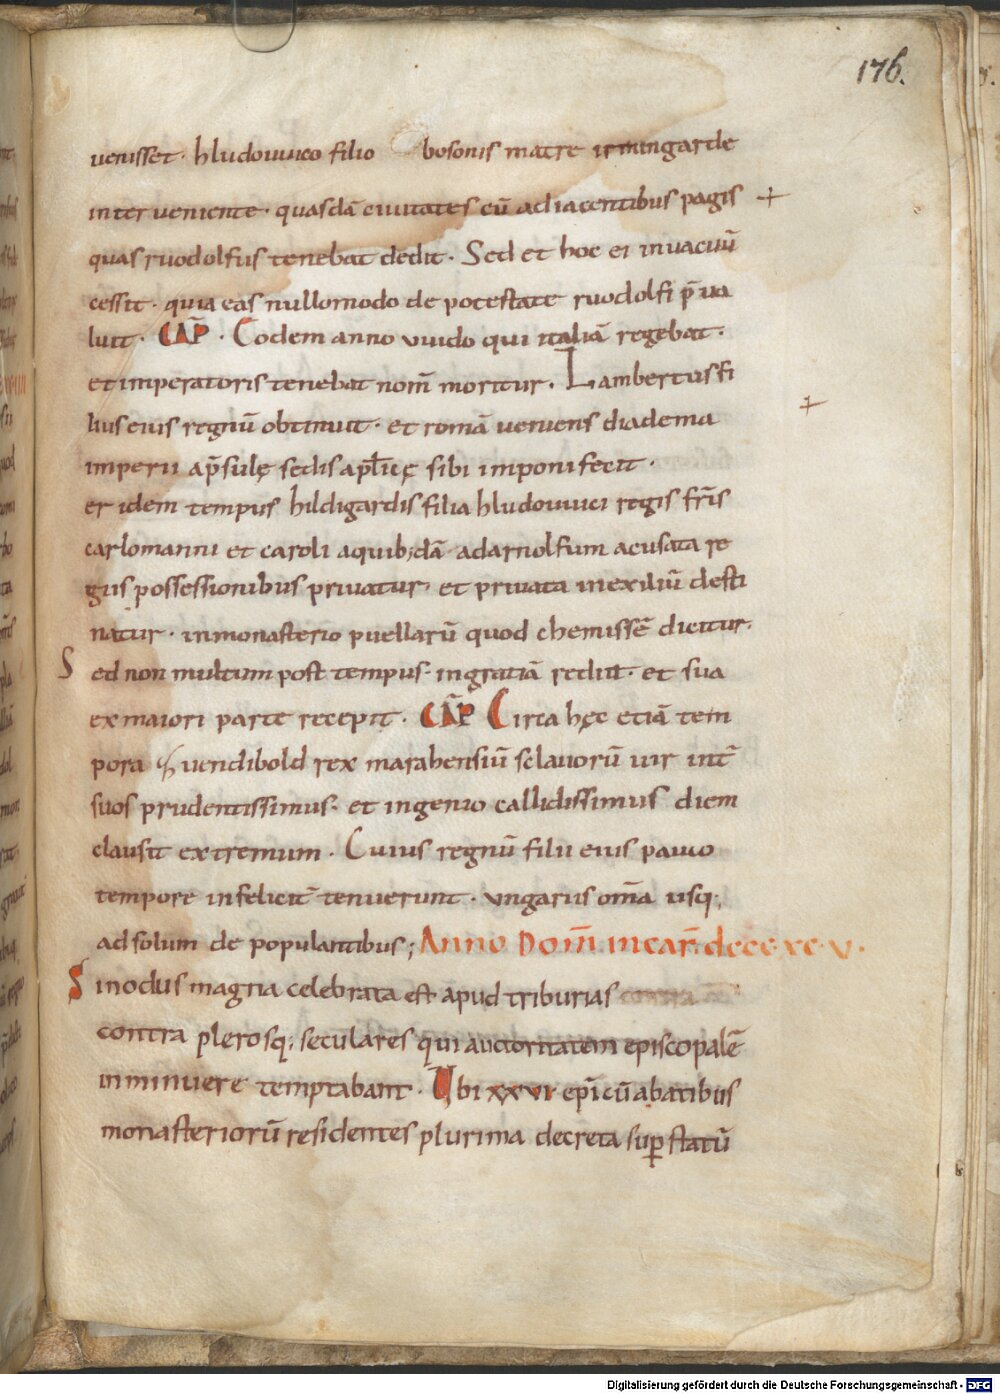 176.
uenisset· hludouuico filio bosonis matre irmingarde
interueniente· quasdā ciuitates cū adiacentibus pagis +
quas ruodolfus tenebat dedit· Sed et hoc ei inuacuū
cessit· quia eas nullomodo de potestate ruodolfi p̄ua
luit· CAP̄· Eodem anno vuido qui italiā regebat·
et imperatoris tenebat nom̄ moritur· Lambertus fi
lius eius regnū obtinuit· et romā ueniens diadema +
imperii ap̄sulę sedis ap̄licę sibi imponi fecit·
er idem tempus hildigardis filia hludouuici regis fr̄is
carlomanni et caroli aquib;dā adarnolfum acusata re
giis possessionibus priuatur· et priuata inexiliū desti
natur· inmonasterio puellarū quod chemissē dicitur·
S ed non multum post tempus· ingratiā rediit· et sua
ex maiori parte recepit· CAP̄ Circa hęc etiā tem
pora Zuuendibold rex marahensiū sclauorū uir int̄
suos prudentissimus· et ingenio callidissimus diem
clausit extremum· Cuius regnū filii eius pauco
tempore infelicit̄ tenuerunt· vngariis om̄a usq;
ad solum de populantibus; Anno Dom̄ incar̄ dccc·xc·v·
S inodus magna celebrata est apud triburias
contra plerosq; seculares qui auctoritatem episcopalē
inminuere temptabant· Ubi xxvi ep̄i cū abatibus
monasteriorū residentes plurima decreta sup̱ statū
Digitalisierung gefördert durch die Deutsche Forschungsgemeinschaft - DFG